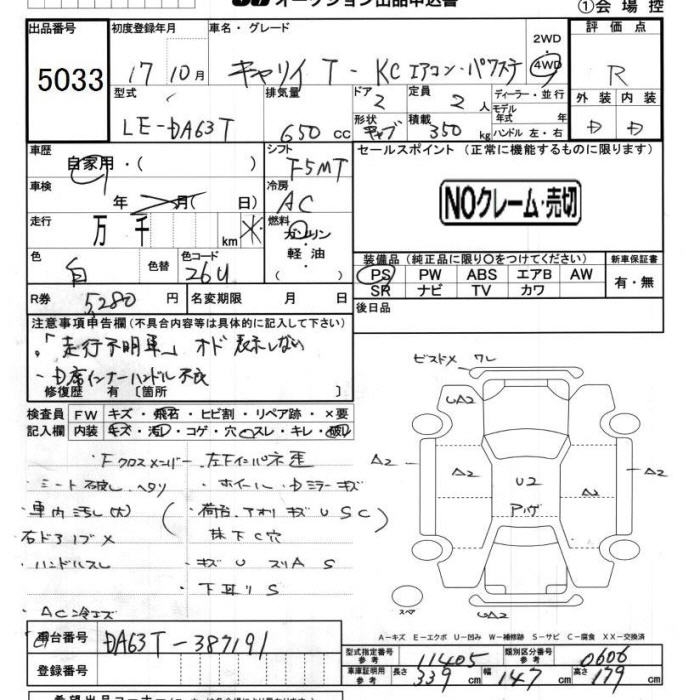 オークション出品申込書
①会場控
出品番号 5033
初度登録年月 17 10月
車名・グレード キャリイ T - KC エアコン・パワステ
2WD
4WD
評価点 R
型式 LE-DA63T
排気量 650 cc
ドア 2
定員 2 人
ディーラー・並行
モデル年式 年
形状 キャブ
積載 350 kg
ハンドル 左・右
外装 内装
D D
車歴 自家用・( )
シフト F5MT
セールスポイント (正常に機能するものに限ります)
車検 年 月( 日)
冷房 AC
NOクレーム・売切
走行 万 千 km ※
燃料 ガソリン
軽油
( )
色 白 色替
色コード 26U
装備品 (純正品に限り○をつけてください)
新車保証書
PS PW ABS エアB AW
SR ナビ TV カワ
有・無
R券 5280 円
名変期限 月 日
後日品
注意事項申告欄 (不具合内容等は具体的に記入して下さい)
「走行不明車」 オド表示しない
修復歴 有 [箇所 ]
検査員 FW キズ・飛石・ヒビ割・リペア跡・×要
記入欄 内装 キズ・汚レ・コゲ・穴・スレ・キレ・破レ
Fクロスメンバー 左下インパネ歪
シート破レ ヘタリ
ホイール・Dミラーキズ
車内汚レ(大)
荷台、アオリ キズ U S C
右ドアノブ×
床下C穴
ハンドルスレ
キズ U スリA S
下廻り S
AC冷エズ
UA2
A2
A2
U2
A2
A2
スペア
UA2
A-キズ E-エクボ U-凹み W-補修跡 S-サビ C-腐食 XX-交換済
車台番号 DA63T-387191
登録番号
型式指定番号 参考 11405
類別区分番号 参考 0606
車庫証明用 参考 長さ 339 cm 幅 147 cm 高さ 179 cm